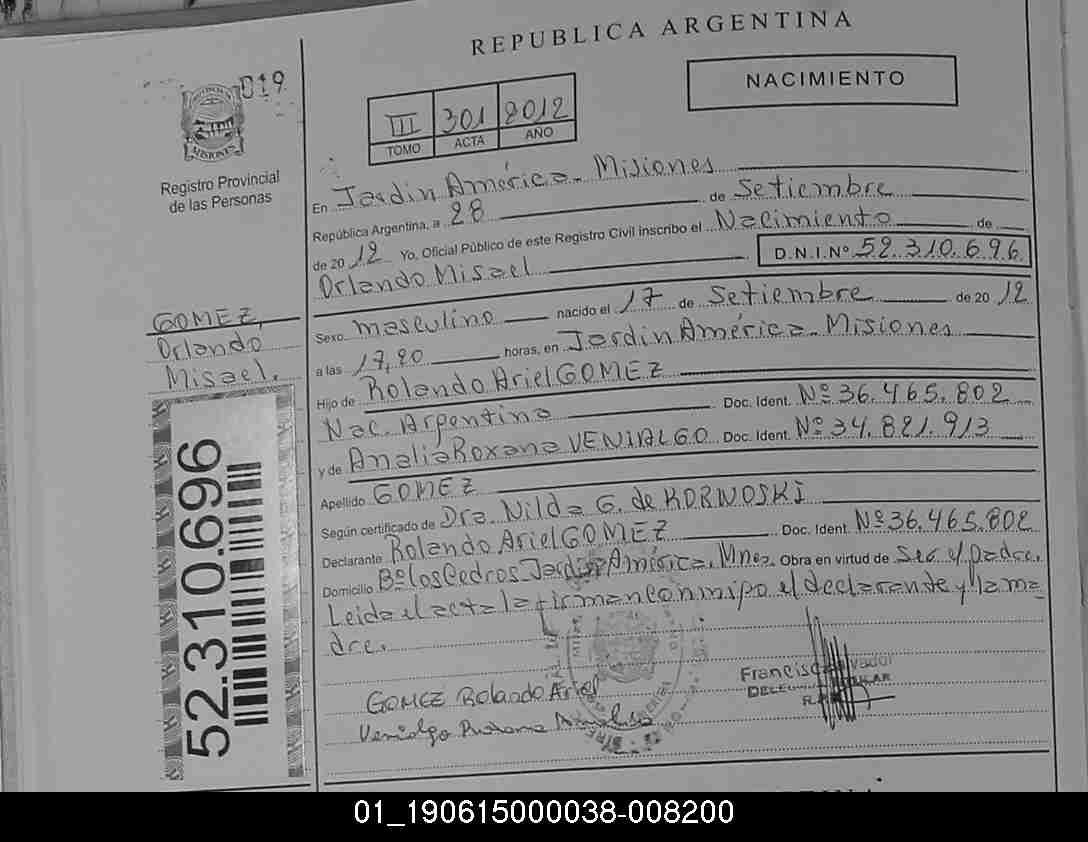 REPUBLICA ARGENTINA
019
NACIMIENTO
III 301 2012
TOMO ACTA AÑO
MISIONES
Registro Provincial
de las Personas
En Jardin América - Misiones
República Argentina, a 28 de Setiembre
de 2012 Yo, Oficial Público de este Registro Civil inscribo el Nacimiento de
Orlando Misael D.N.I. Nº 52.310.696
GOMEZ,
Orlando
Misael.
Sexo masculino nacido el 17 de Setiembre de 2012
a las 17,20 horas, en Jardin América - Misiones
Hijo de Rolando Ariel GOMEZ
Nac. Argentina Doc. Ident. Nº 36.465.802
y de Analia Roxana VENIALGO Doc. Ident. Nº 34.821.913
Apellido GOMEZ
Según certificado de Dra. Nilda G. de KORNOSKI
Declarante Rolando Ariel GOMEZ Doc. Ident. Nº 36.465.802
Domicilio Bº los Cedros, Jardin América, Mnes. Obra en virtud de ser el padre.
Leida el acta la firman conmigo el declarante y la ma
dre.
GOMEZ Rolando Ariel
Venialgo Roxana Analia
52.310.696
01_190615000038-008200